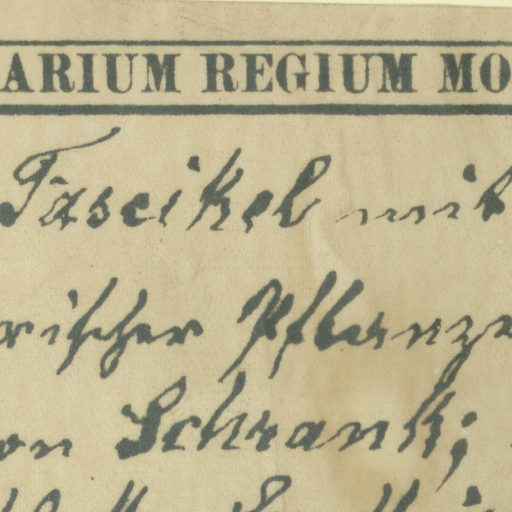 ARIUM REGIUM MO
Faseikel mit
rischer Pflanze
on Schrank;